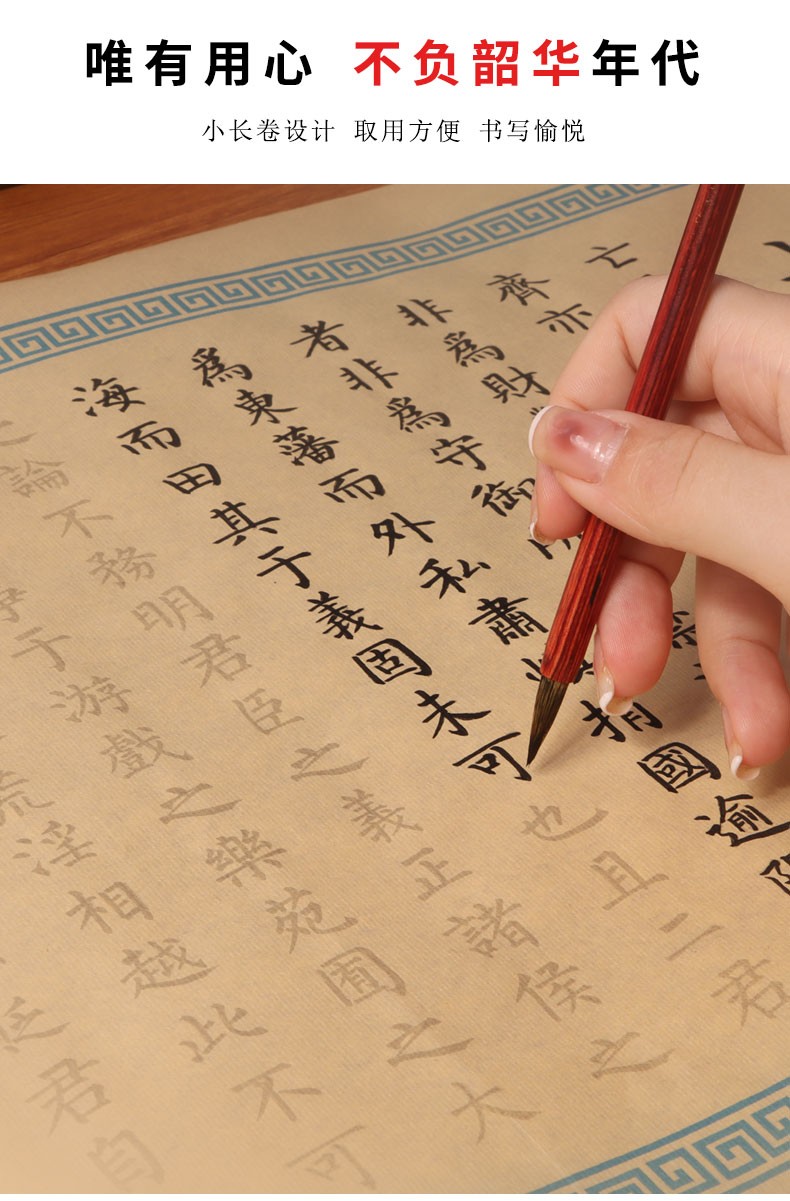 唯有用心 不负韶华年代
小长卷设计 取用方便 书写愉悦
亡
齊亦
非為財
者非為守御
為東藩而外私肅捐國逾
海而田其于義固未可也且二君
之論不務明君臣之義正諸侯之
于游戲之樂苑囿之大
荒淫相越此不可
貶君自